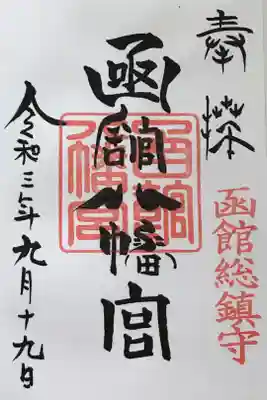 奉拝
函館総鎮守
函館八幡宮
函館八幡宮
令和三年九月十九日